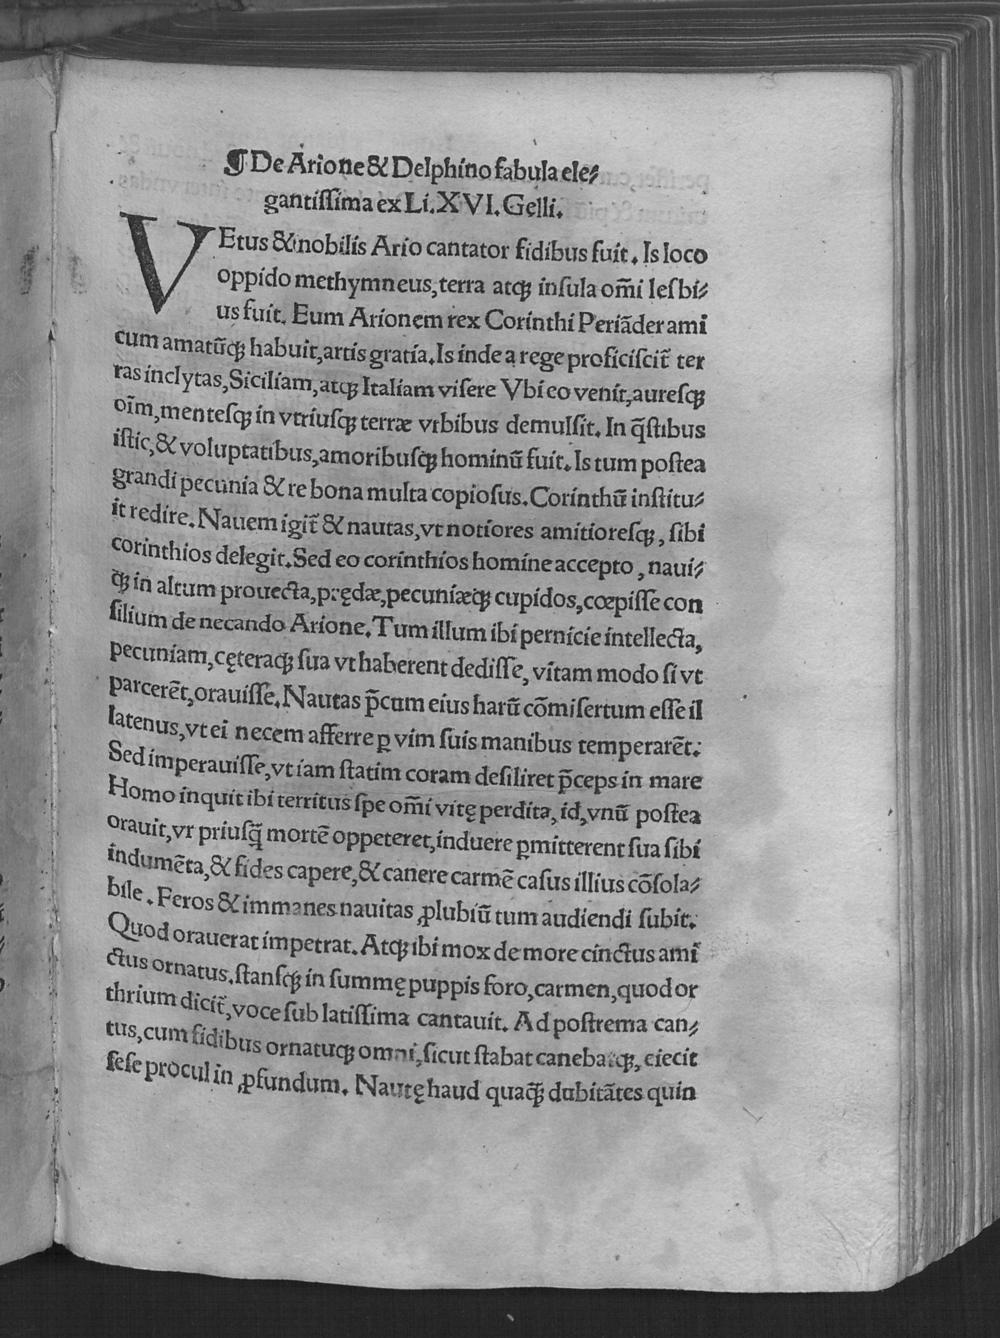 ¶ De Arione & Delphino fabula ele⸗
gantiſſima ex Li. XVI. Gelli.
VEtus & nobilis Ario cantator fidibus fuit. Is loco
oppido methymneus, terra atqꝫ inſula om̄i leſbi⸗
us fuit. Eum Arionem rex Corinthi Periāder ami
cum amatūqꝫ habuit, artis gratia. Is inde a rege proficiſcit᷑ ter
ras inclytas, Siciliam, atqꝫ Italiam viſere Vbi eo venit, aureſqꝫ
oīm, menteſqꝫ in vtriuſqꝫ terræ vrbibus demulſit. In q̄ſtibus
iſtic, & voluptatibus, amoribuſqꝫ hominū fuit. Is tum poſtea
grandi pecunia & re bona multa copioſus. Corinthū inſtitu⸗
it redire. Nauem igit᷑ & nautas, vt notiores amitioreſqꝫ, ſibi
corinthios delegit. Sed eo corinthios homine accepto, naui⸗
qꝫ in altum prouecta, prędæ, pecuniæqꝫ cupidos, cœpiſſe con
ſilium de necando Arione. Tum illum ibi pernicie intellecta,
pecuniam, cęteraqꝫ ſua vt haberent dediſſe, vitam modo ſi vt
parcerēt, orauiſſe. Nautas p̄cum eius harū cōmiſertum eſſe il
latenus, vt ei necem afferre ꝑ vim ſuis manibus temperarēt:
Sed imperauiſſe, vt iam ſtatim coram deſiliret p̄ceps in mare
Homo inquit ibi territus ſpe om̄i vitę perdita, id, vnū poſtea
orauit, vr priuſq̄ mortē oppeteret, induere ꝑmitterent ſua ſibi
indumēta, & fides capere, & canere carmē caſus illius cōſola⸗
bile. Feros & immanes nauitas ꝓlubiū tum audiendi ſubit:
Quod orauerat impetrat. Atqꝫ ibi mox de more cinctus ami
ctus ornatus. ſtanſqꝫ in ſummę puppis foro, carmen, quod or
thrium dicit᷑, voce ſub latiſſima cantauit. Ad poſtrema can⸗
tus, cum fidibus ornatuqꝫ omni, ſicut ſtabat canebatqꝫ, eiecit
ſeſe procul in ꝓfundum. Nautę haud quaqꝫ̄ dubitātes quin